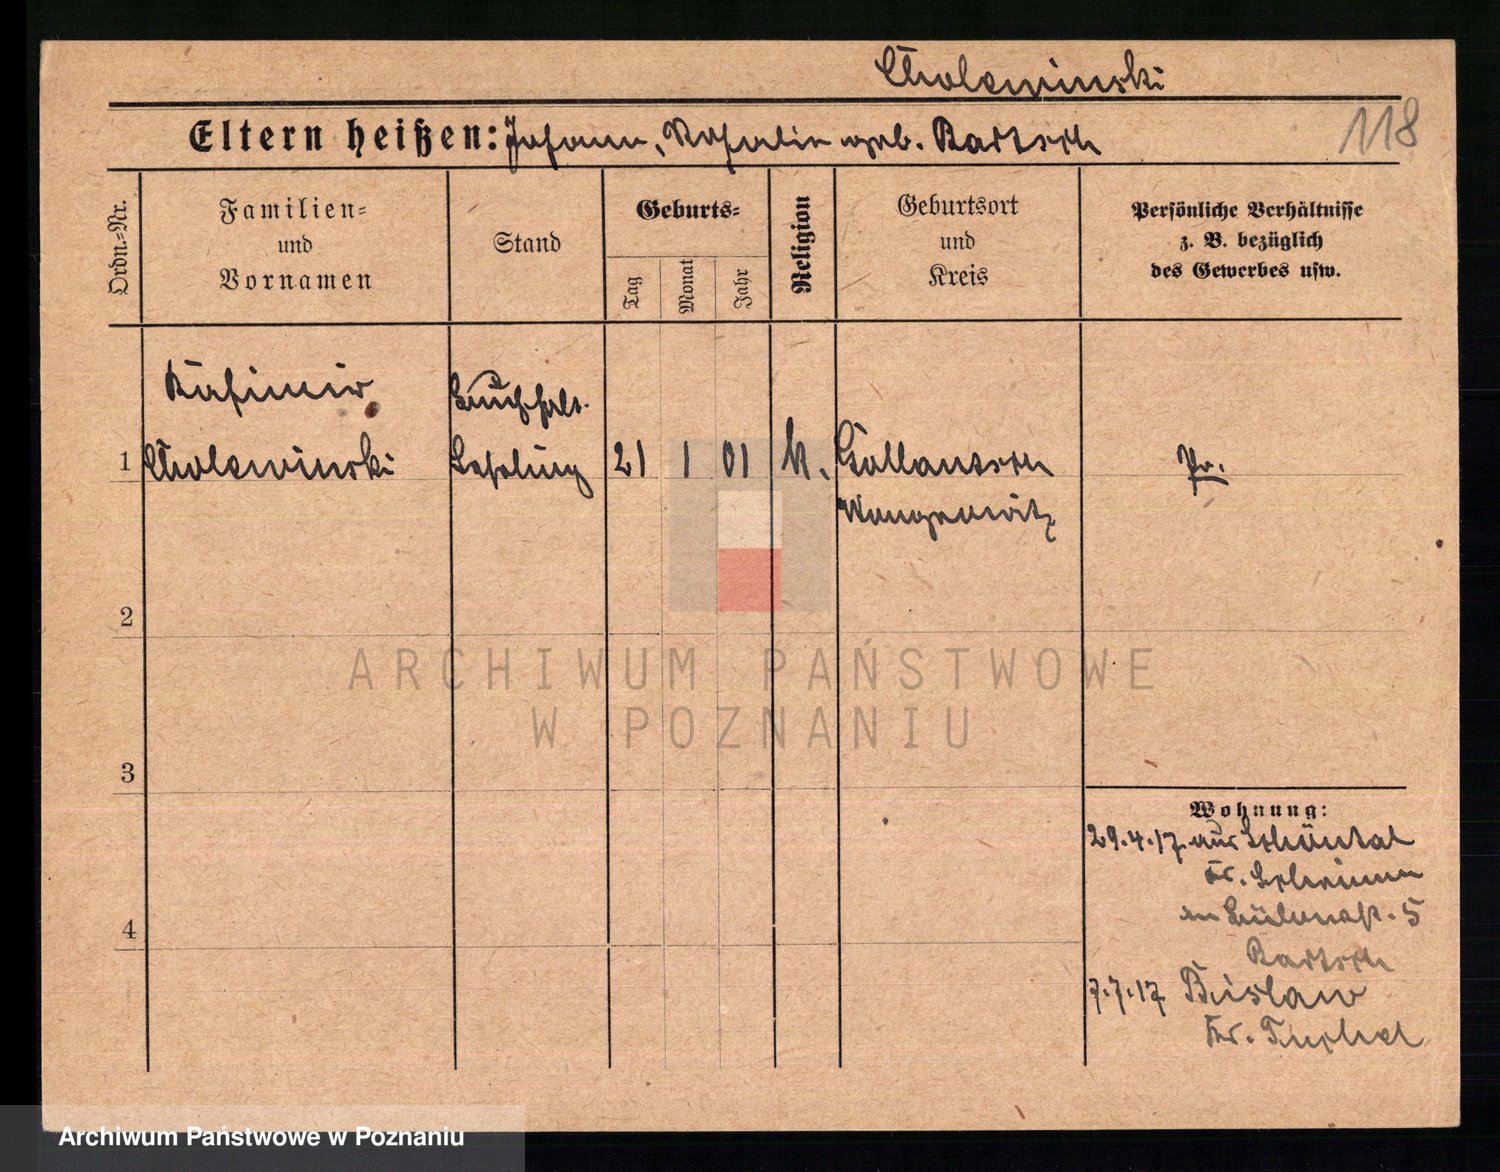 Cholewinski
118
Eltern heißen: Johann, Rosalie geb. Bartsch
Ordn.=Nr.
Familien=
und
Vornamen
Stand
Geburts=
Tag
Monat
Jahr
Religion
Geburtsort
und
Kreis
Persönliche Verhältnisse
z. B. bezüglich
des Gewerbes usw.
Kasimir
Buchhalt.
1 Cholewinski Lehrling 21 1 01 k. Gollantsch Pr.
Wongrowitz
2
3
4
Wohnung:
29.4.17 aus Schöntal
Kr.
5
Bartsch
7.7.17 Bislaw
Kr. Tuchel
ARCHIWUM PAŃSTWOWE
W POZNANIU
Archiwum Państwowe w Poznaniu